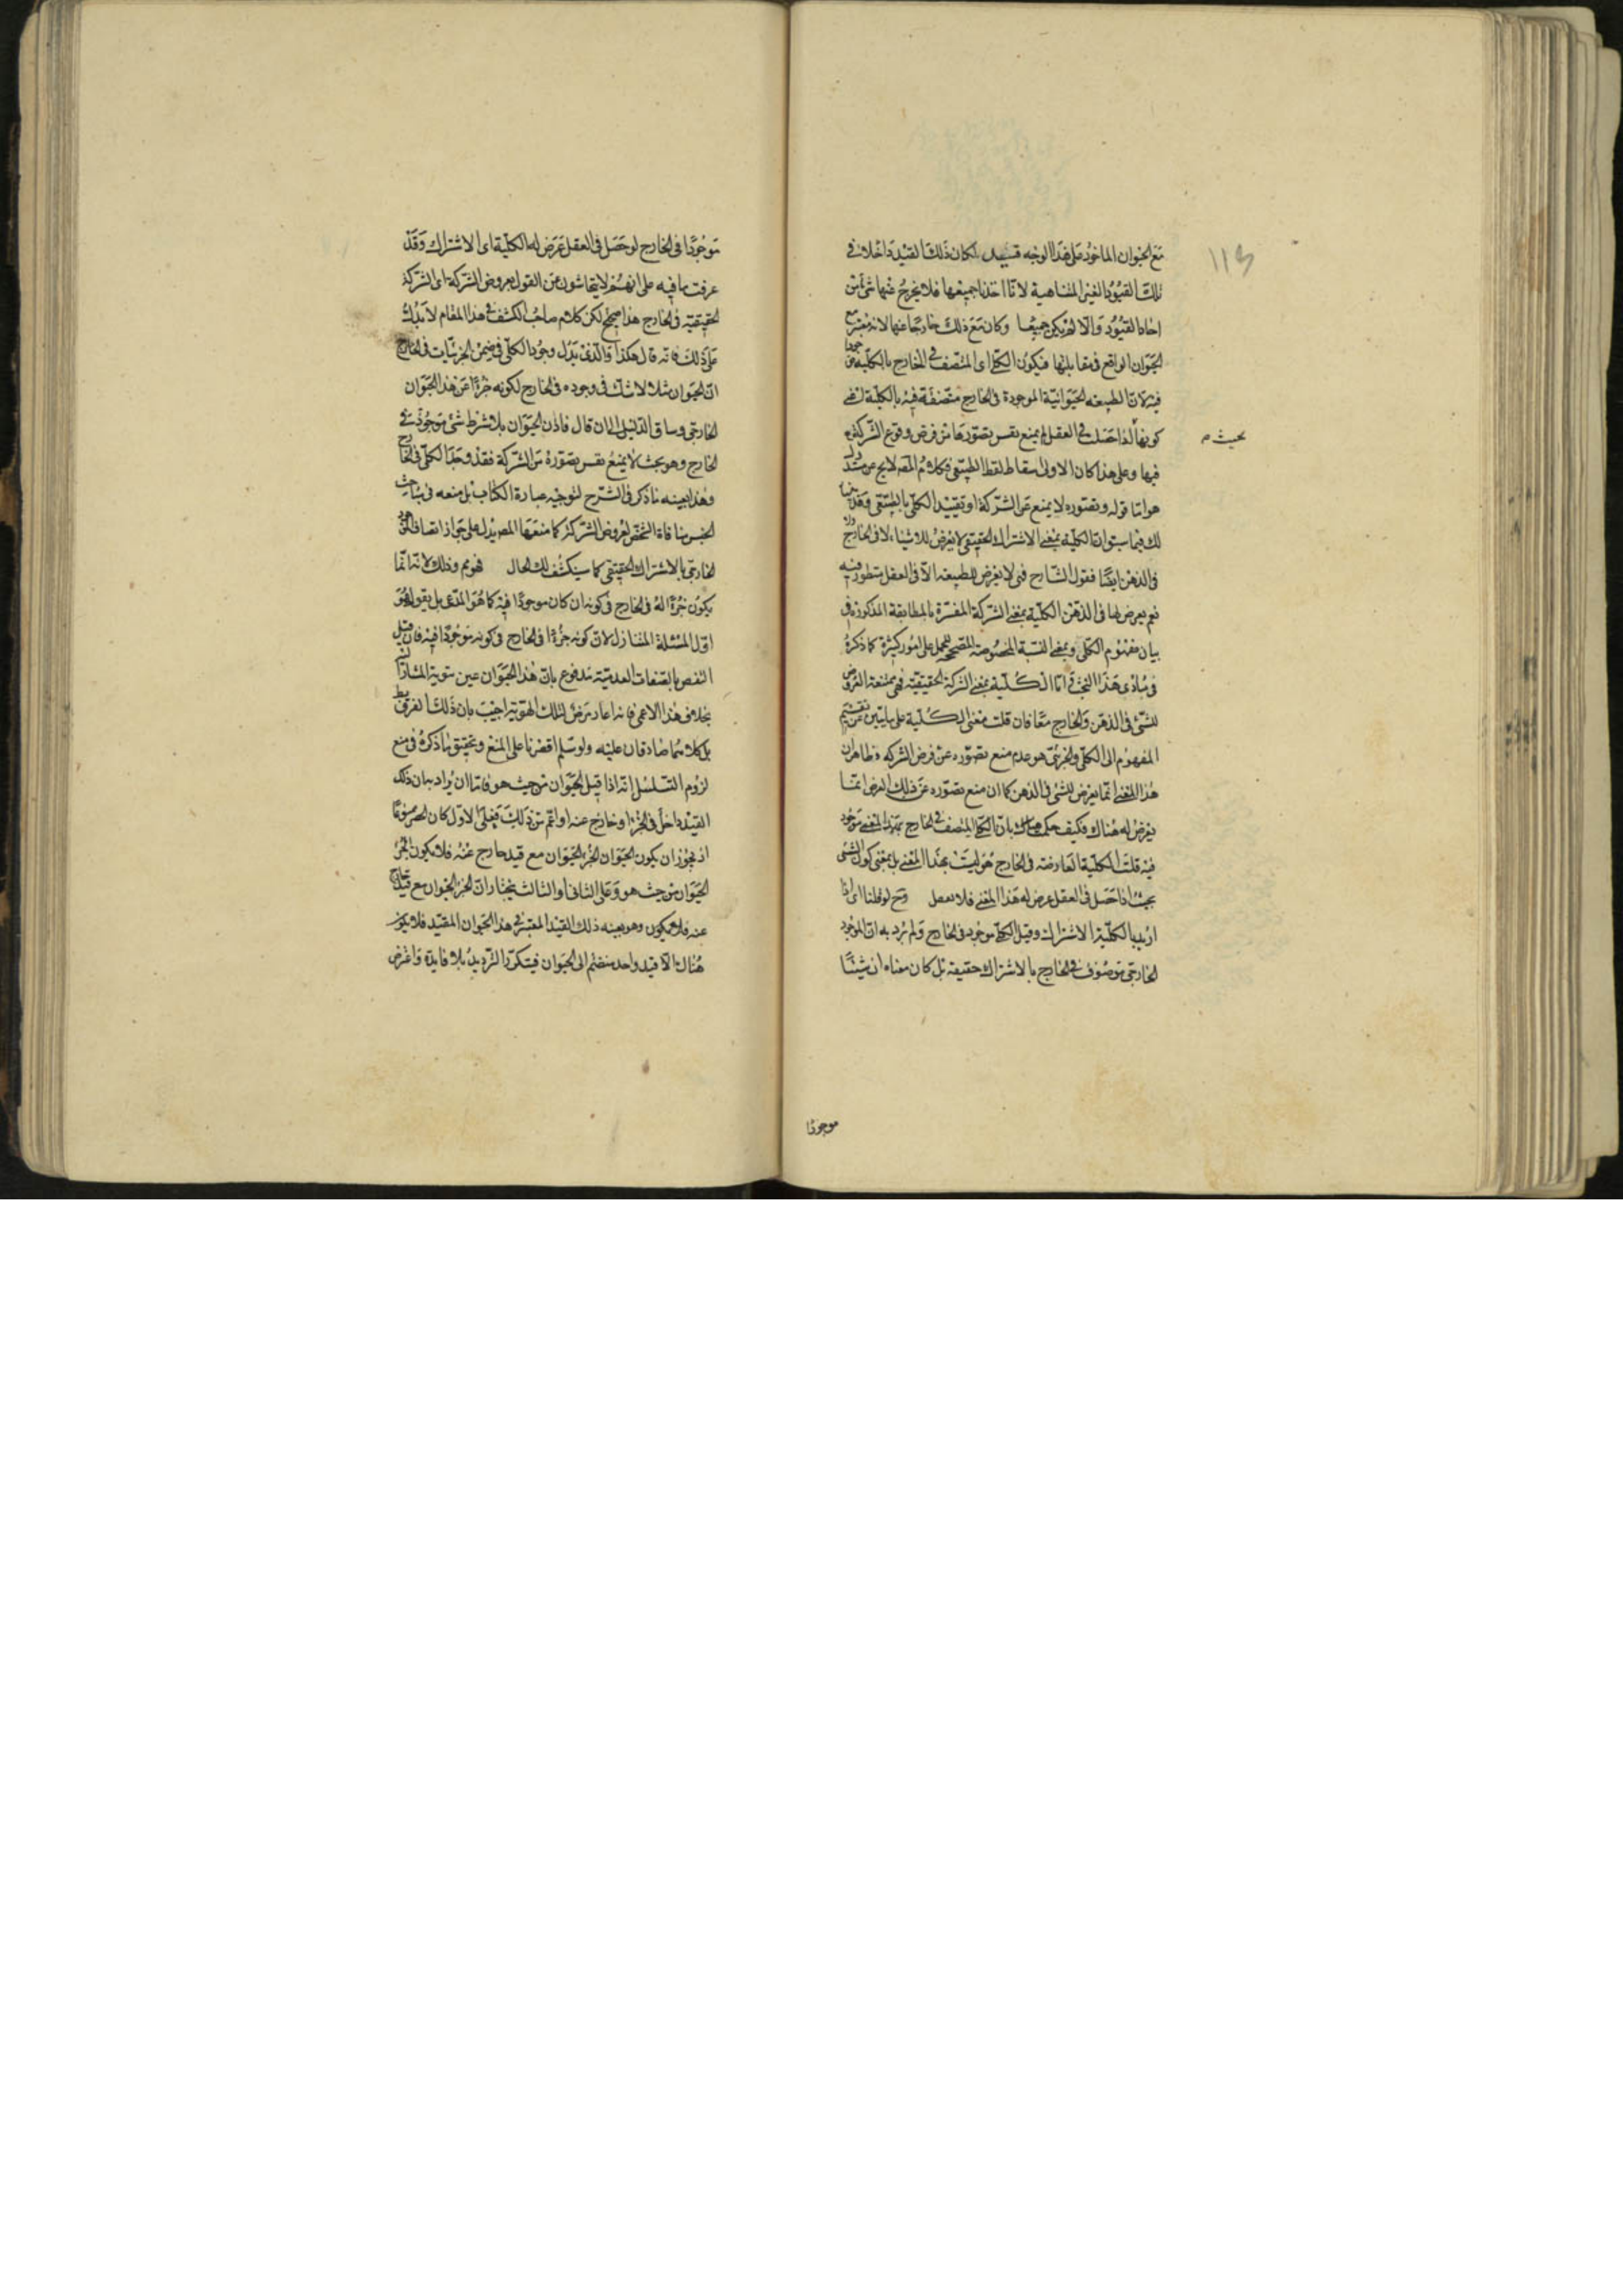 ١١٣
مع الحيوان الماخوذ على هذا الوجه قيد لكان ذلك القيد داخلا في
تلك القيود الغير المتناهية لانا اخذنا جميعها فلا يخرج عنها شئ من
احاد القيود والا لم يكن جميعا وكان مع ذلك خارجا عنها لانه معتبر مع
الحيوان الواقع في مقابلتها فيكون الكلى اى المتصف في الخارج بالكلية
فيه لان الطبيعة الحيوانية الموجودة في الخارج متصفة فيه بالكلية
كونها اذا حصلت في العقل لم يمنع نفس تصورها من فرض وقوع الشركة
بحيث م
فيها وعلى هذا كان الاولى اسقاط لفظ الطبيعى فكلام المص لا يخ عن
هو اما قوله وتصوره لا يمنع عن الشركة او تقييد الكلى بالطبيعى وقد
لك فيما سبق ان الكلية بمعنى الاشتراك الحقيقى لا يعرض للاشياء لا في الخارج
في الذهن ايضا فقول الشارح فهى لا يعرض للطبيعة الا في العقل منظور فيه
نعم يعرض لها في الذهن الكلية بمعنى الشركة المفسرة بالمطابقة المذكورة في
بيان مفهوم الكلى وبمعنى النسبة المخصوصة المصححة للحمل على امور كثيرة كما ذكره
في مبادى هذا البحث واما الكلية بمعنى الشركة الحقيقية فهى ممتنعة العروض
للشئ في الذهن والخارج معا فان قلت معنى الكلية على ما يتبين من تقسيم
المفهوم الى الكلى والجزئى هو عدم منع تصوره عن فرض الشركة وظاهر ان
هذا المعنى انما يعرض للشئ في الذهن كما ان منع تصوره عن ذلك الفرض انما
يعرض له هناك فكيف حكمت هناك بان الكلى المتصف في الخارج بهذا المعنى موجود
فيه قلت الكلية العارضة في الخارج هو ليست بهذا المعنى بل بمعنى كون الشئ
بحيث اذا حصل في العقل عرض له هذا المعنى فلا تغفل وح لو قلنا اى اذا
اريد بالكلية الاشتراك وقيل الكلى موجود في الخارج ولم يرد به ان الموجود
الخارجى موصوف في الخارج بالاشتراك حقيقة بل كان معناه ان شيئا
موجودا
موجودا في الخارج لو حصل في العقل عرض له الكلية اى الاشتراك وقد
عرفت ما فيه على انهم لا يتحاشون عن القول بعروض الشركة اى الشركة
الحقيقية في الخارج هذا صحيح لكن كلام صاحب الكشف في هذا المقام لا يدل
على ذلك فانه قال هكذا والذى يدل وجود الكلى في ضمن الجزئيات في الخارج
ان الحيوان مثلا لا شك في وجوده في الخارج لكونه جزءا من هذا الحيوان
الخارجى وساق الدليل الى ان قال فاذن الحيوان بلا شرط شئ موجود في
الخارج وهو بحيث لا يمنع نفس تصوره من الشركة فقد وجد الكلى في الخارج
وهذا بعينه ما ذكر في الشرح لتوجيه عبارة الكتاب بل منعه في مباحث
الجنس منافاة التشخص لعروض الشركة كما منعها المص يدل على جواز اتصاف
الخارجى بالاشتراك الحقيقى كما سينكشف لك الحال فهو مم وذلك لانه انما
يكون جزءا له في الخارج في كونه ان كان موجودا فيه كما هو المدعى بل يقول هو
اول المسئلة المتنازل لان كونه جزءا في الخارج في كونه موجودا فيه فان قيل
النقص بالصفات العدمية مدفوع بان هذا الحيوان عين هوية المشار اليه
بخلاف هذا الاعمى فانه اعار عرض لتلك الهوية اجيب بان ذلك الفرق
بل كلاهما صادقان عليه ولو سلم اقصرنا على المنع وتحقيق ما ذكره في منع
لزوم التسلسل انه اذا قيل الحيوان من حيث هو فاما ان يراد بيان ذلك
القيد داخل في الجزء او خارج عنه او اعم من ذلك فعلى الاول كان الحصر ممنوعا
اذ يجوز ان يكون الحيوان الجزء الحيوان مع قيد خارج عنه فلا يكون الجزء
الحيوان من حيث هو وعلى الثانى او الثالث يختار ان الجزء الحيوان مع قيد خارج
عنه فلا يكون وهو بعينه ذلك القيد المعتبر في هذا الحيوان المقيد فلا يكون
هناك الا قيد واحد منضم الى الحيوان فيتكرر الترديد بلا فايدة واعترض